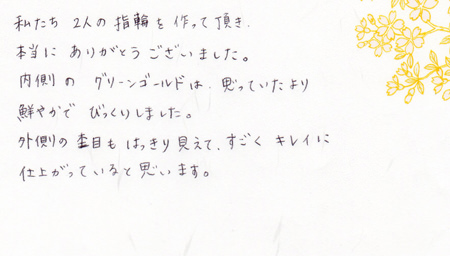 私たち 2人の 指輪を 作って頂き、
本当に ありがとう ございました。
内側の グリーンゴールドは、思っていたより
鮮やかで びっくりしました。
外側の 杢目も はっきり見えて、すごく キレイに
仕上がっていると思います。